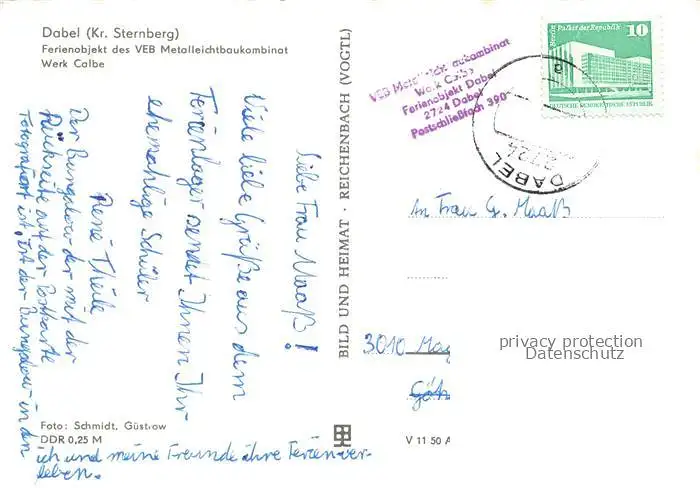 Dabel (Kr. Sternberg)
Ferienobjekt des VEB Metalleichtbaukombinat
Werk Calbe
Liebe Frau Maaß!
Viele liebe Grüße aus dem
Ferienlager sendet Ihnen Ihr
ehemahlige Schüler
René Theile
Der Bungalow der mit der
Rückseite auf der Postkarte
Fotografiert ist, ist der Bungalow in den
ich und meine Freunde ihre Ferien ver-
leben.
Foto: Schmidt, Güstrow
DDR 0,25 M
BILD UND HEIMAT · REICHENBACH (VOGTL)
V 11 50 A
VEB Metalleichtbaukombinat
Werk Calbe
Ferienobjekt Dabel
2724 Dabel
Postschließfach 390
Berlin, Palast der Republik
10
DEUTSCHE DEMOKRATISCHE REPUBLIK
DABEL
2724
An Frau G. Maaß
3010 Mag
Göh
privacy protection
Datenschutz